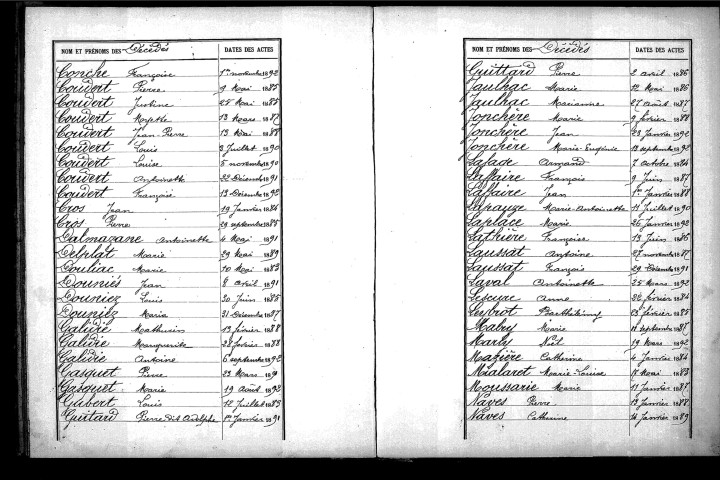 NOM ET PRÉNOMS DES Décédés DATES DES ACTES
Conche Françoise 1er novembre 1892
Coudert Pierre 9 Mai 1885
Coudert Justine 25 Mai 1885
Coudert Mayette 13 Mars 1887
Coudert Jean Pierre 13 Mai 1888
Coudert Louis 3 Juillet 1890
Coudert Louise 5 novembre 1890
Coudert Antoinette 22 Décembre 1891
Coudert Françoise 13 Décembre 1892
Cros Jean 19 Janvier 1884
Cros Pierre 29 septembre 1885
Dalmazane Antoinette 4 Mai 1891
Delplat Marie 29 Mai 1889
Douliac Marie 10 Mai 1883
Douniés Jean 8 avril 1891
Douniez Louis 30 Juin 1885
Douniez Maria 31 Décembre 1887
Galidie Mathurin 13 février 1888
Galidie Marguerite 28 février 1888
Galidie Antoine 6 septembre 1892
Gasquet Pierre 23 Mars 1891
Gasquet Marie 19 août 1892
Gubert Louis 12 Juillet 1889
Guitard Pierre dit Adolphe 1er Janvier 1891
NOM ET PRÉNOMS DES Décédés DATES DES ACTES
Guittard Pierre 2 avril 1886
Jaulhac Marie 12 Mai 1886
Jaulhac Marianne 27 août 1887
Jonchère Marie 9 février 1888
Jonchère Jean 23 Janvier 1892
Jonchère Marie Eugénie 13 septembre 1892
Lafage Armand 7 octobre 1884
Laffaire François 9 Juin 1887
Laffaire Jean 1er Janvier 1888
Lapauze Marie-Antoinette 11 Juillet 1890
Laplace Marie 26 Janvier 1892
Lathière Françoise 13 Juin 1886
Laussat Antoine 27 novembre 1887
Laussat François 29 Décembre 1891
Laval Antoinette 25 Mars 1892
Anne 22 février 1884
Leybrot Barthélemy 13 février 1885
Mabry Marie 11 septembre 1887
Marly Noël 19 Mars 1892
Mazière Catherine 4 Janvier 1884
Mialaret Marie-Louise 17 Mai 1883
Moussarie Marie 11 Janvier 1887
Naves Pierre 13 Janvier 1888
Naves Catherine 14 Janvier 1889